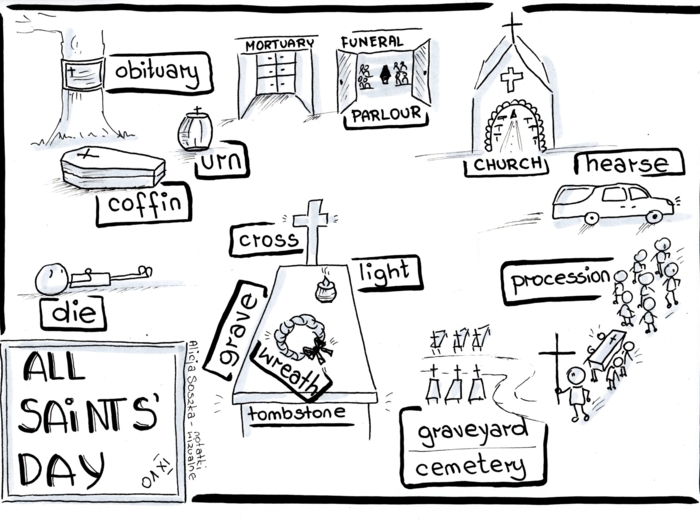 obituary
MORTUARY
FUNERAL
PARLOUR
urn
CHURCH
hearse
coffin
cross
light
procession
die
grave
wreath
tombstone
graveyard
cemetery
ALL
SAINTS'
DAY
01 XI
Alicja Soszka - notatki
wizualne